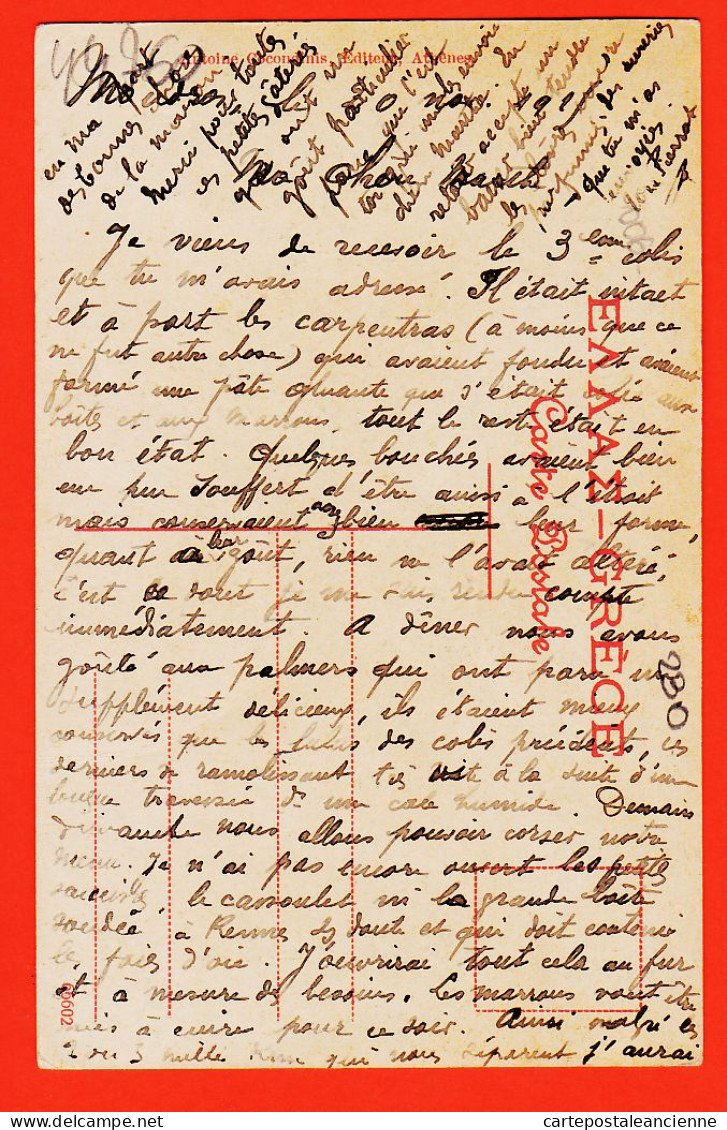 Antoine Coconsinis, Editeur, Athènes
10 nov. 191
Mon Chou
Je viens de recevoir le 3 eme colis
que tu m'avais adressé. Il était intact
et à part les carpentras (à moins que ce
ne fut autre chose) qui avaient fondu et avaient
formé une pâte gluante qui s'était collée aux
boîtes et aux marrons, tout le reste était en
bon état. Quelques bouchés avaient bien
un peu souffert d'être ainsi à l'étroit
mais conservaient assez bien leur forme,
quant à leur goût, rien ne l'avait altéré,
c'est ce dont je me suis rendu compte
immédiatement. A dîner nous avons
goûté aux palmers qui ont paru un
supplément délicieux, ils étaient mieux
conservés que les lulus des colis précédents, ces
derniers se ramolissant très vite à la suite d'une
longue traversée dans une cale humide. Demain
dimanche nous allons pouvoir corser notre
menu. Je n'ai pas encore ouvert les petites
saucisses, le cassoulet ni la grande boîte
soudée à Rennes sans doute et qui doit contenir
les foies d'oie. J'ouvrirai tout cela au fur
et à mesure des besoins. Les marrons vont être
mis à cuire pour ce soir. Ainsi malgré les
2 ou 3 mille Km qui nous séparent j'aurai
en ma
des bonnes choses
de la maison
Merci pour toutes
ces petites gâteries
qui ont un
goût particulier
parce que c'est
toi qui me les envoie
chère
accepte un
baiser bien tendre
parfumés des
que tu m'as
envoyés.
ton Pierrot
ΕΛΛΑΣ—GRÈCE
Carte Postale
280
66602
cartepostaleancienne